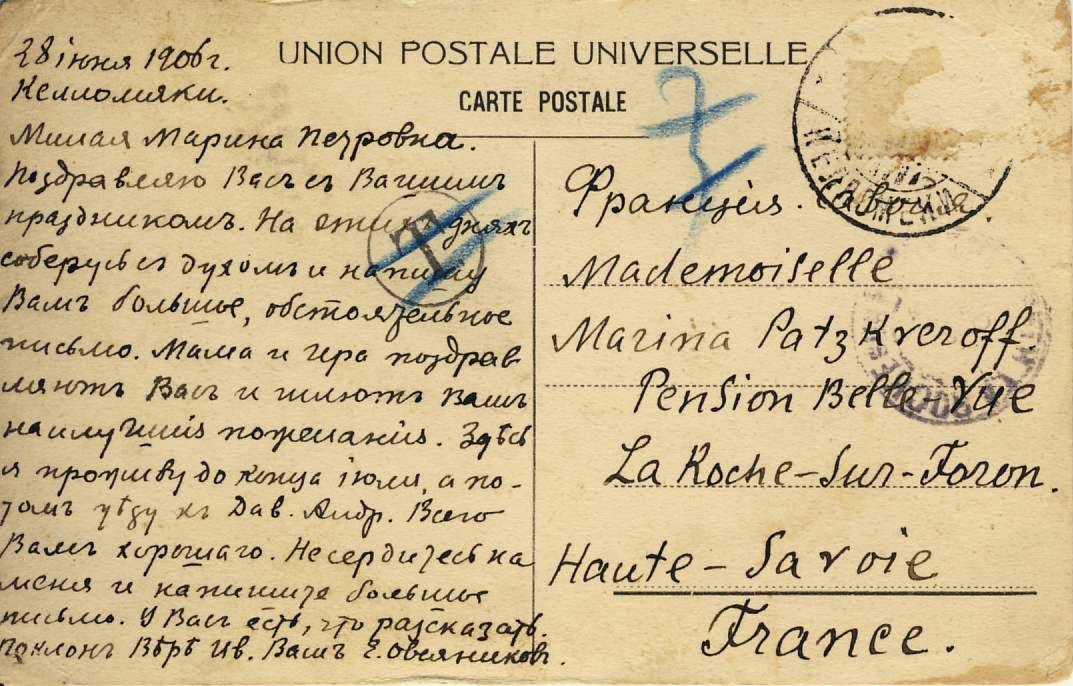 UNION POSTALE UNIVERSELLE
CARTE POSTALE
28 iюня 1906 г.
Келломяки.
Милая Марина Петровна.
Поздравляю Васъ съ Вашимъ
праздникомъ. На этихъ дняхъ
соберусь съ духомъ и напишу
Вамъ большое, обстоятельное
письмо. Мама и Ира поздрав
ляютъ Васъ и шлютъ Вамъ
наилучшія пожеланія. Здѣсь
я проживу до конца iюля, а по-
томъ уѣду къ Дав. Андр. Всего
Вамъ хорошаго. Не сердитесь на
меня и напишите большое
письмо. У Васъ есть, что разсказать.
Поклонъ Вѣрѣ Ив. Вашъ Е. Овсяниковъ.
T
Франція. Савойя.
Mademoiselle
Marina Patzkveroff.
Pension Belle-Vue
La Roche-sur-Foron.
Haute-Savoie
France.